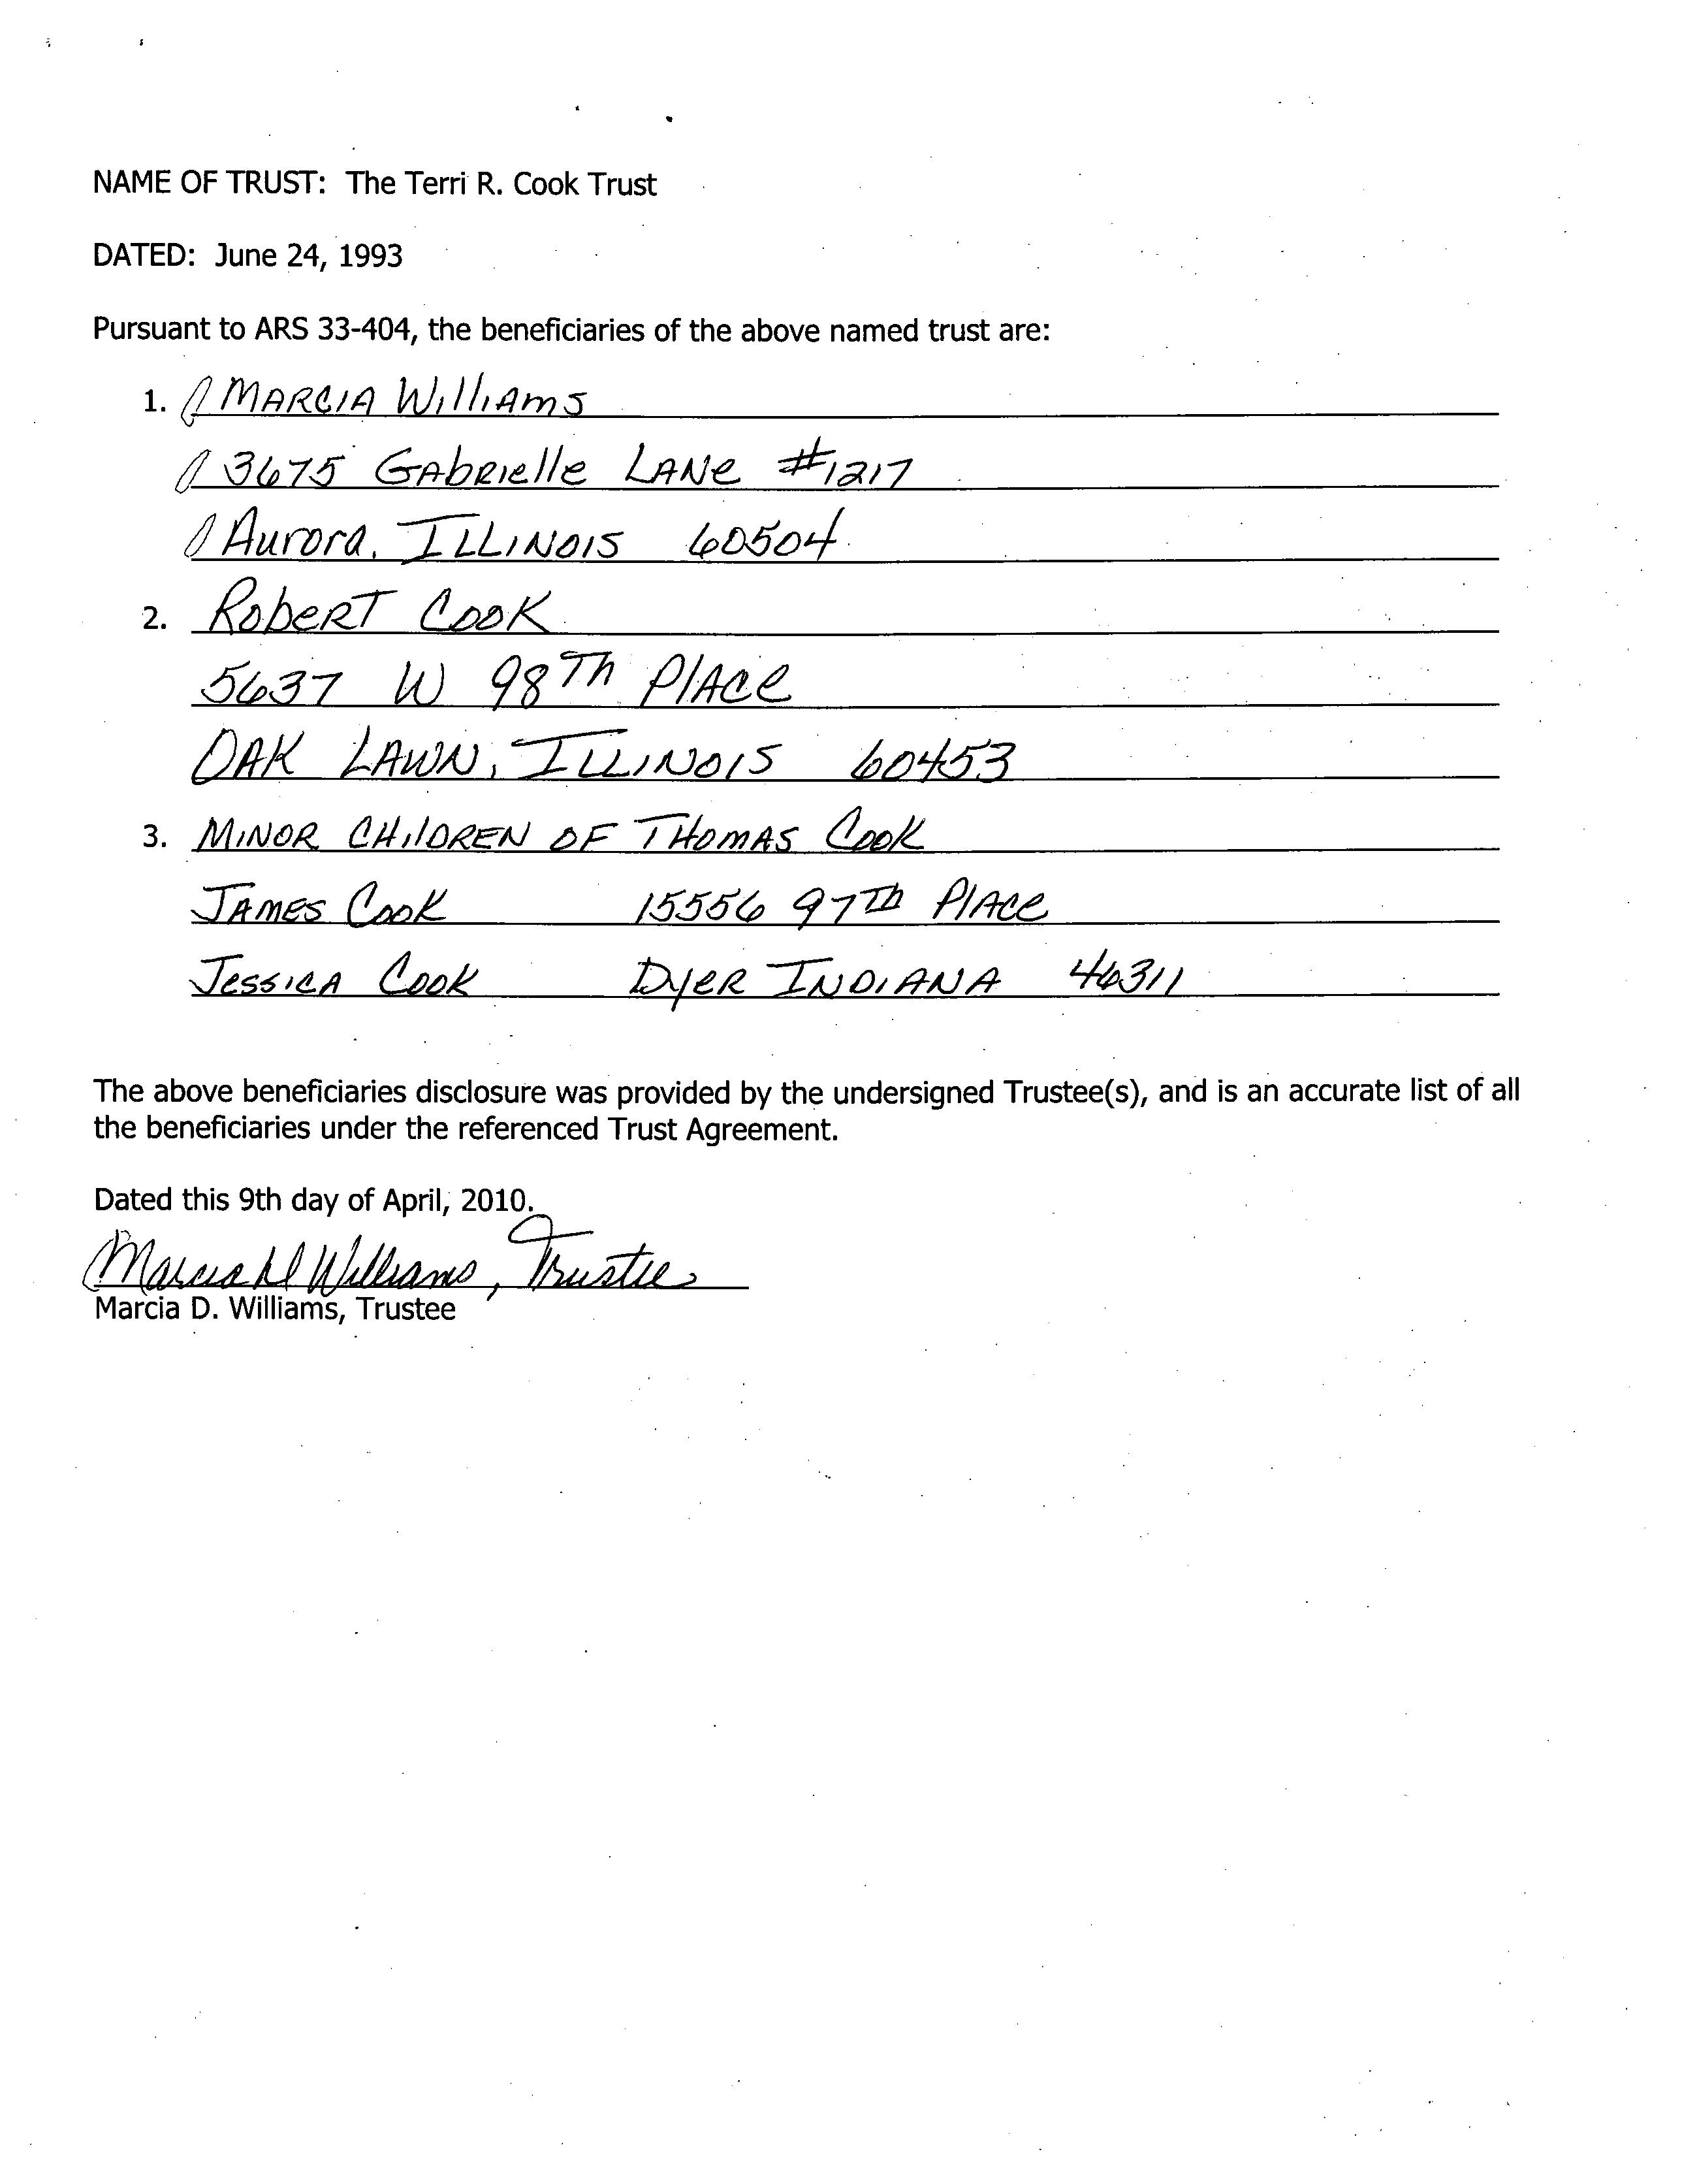 NAME OF TRUST: The Terri R. Cook Trust
DATED: June 24, 1993
Pursuant to ARS 33-404, the beneficiaries of the above named trust are:
1. MARCIA Williams
3675 GAbRIelle LANe #1217
Aurora, ILLINOIS 60504
2. RobeRT COOK
5637 W 98Th PlACe
OAK LAWN, ILLINOIS 60453
3. MINOR CHilDREN OF THOMAS COOK
JAMES COOK 15556 97Th PlACe
JessICA COOK DyeR INDIANA 46311
The above beneficiaries disclosure was provided by the undersigned Trustee(s), and is an accurate list of all
the beneficiaries under the referenced Trust Agreement.
Dated this 9th day of April, 2010.
Marcia D Williams, Trustee
Marcia D. Williams, Trustee